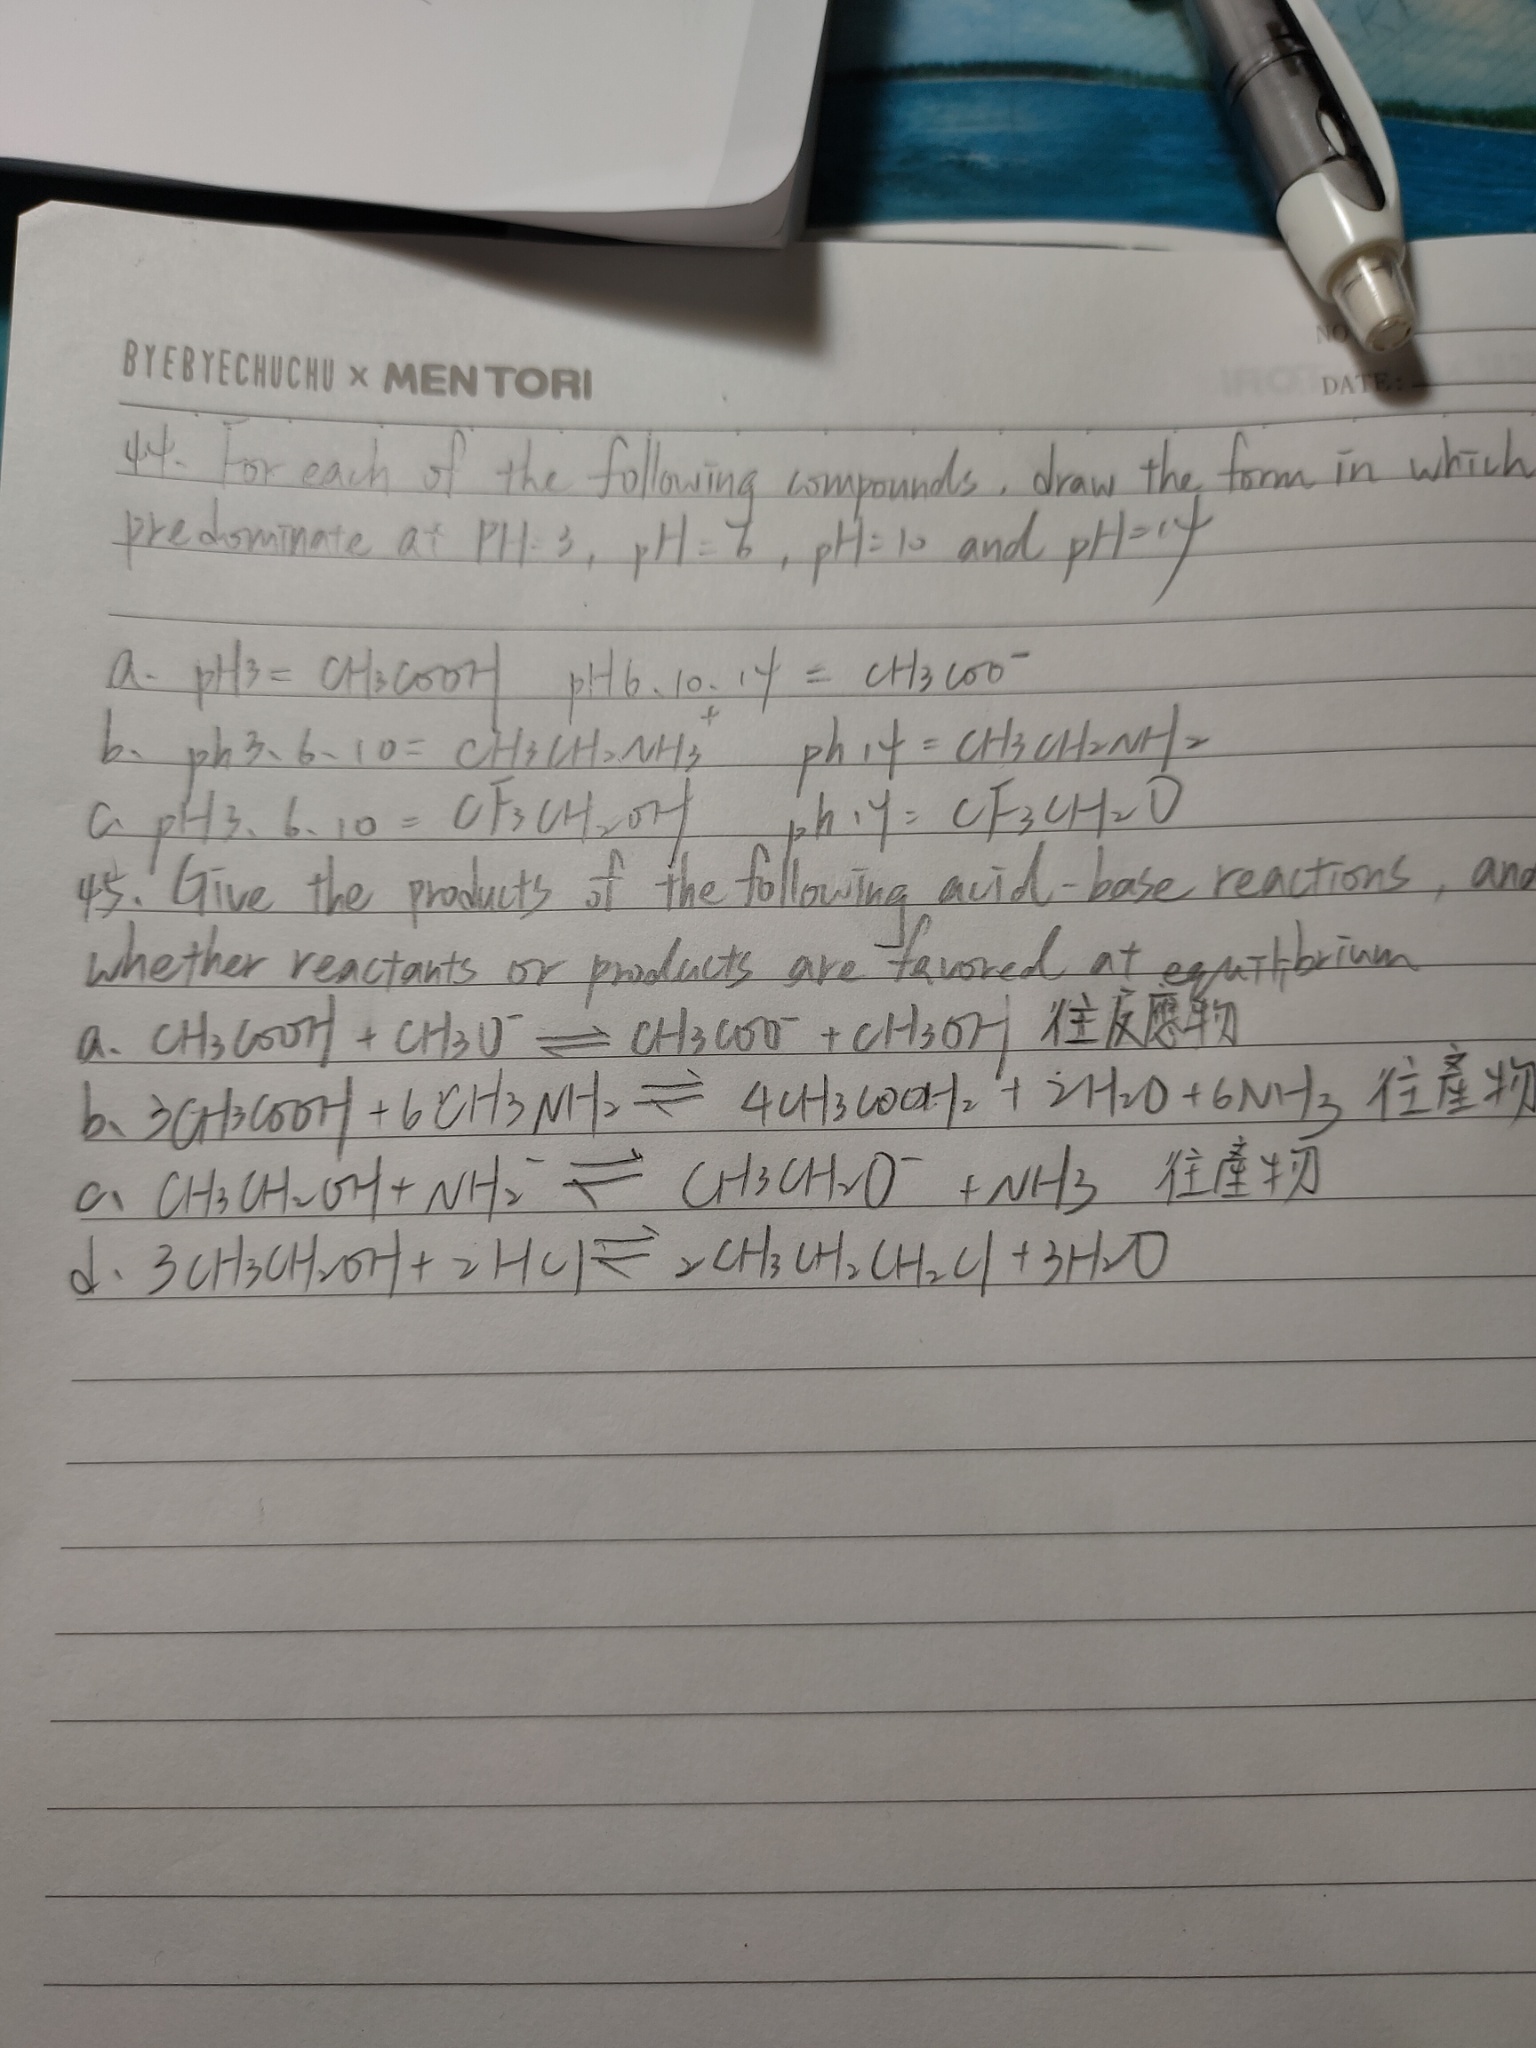 BYEBYECHUCHU × MENTORI
NO
DATE:
44. For each of the following compounds, draw the form in which
predominate at PH=3, pH=6, pH=10 and pH=14
a. pH3= CH3COOH pH6、10、14 = CH3COO⁻
b、 ph3、6、10= CH3CH2NH3⁺ ph14= CH3CH2NH2
c、 pH3、6、10= CF3CH2OH ph14= CF3CH2O
45. Give the products of the following acid-base reactions, and
whether reactants or products are favored at equilibrium
a、 CH3COOH + CH3O⁻ ⇌ CH3COO⁻ + CH3OH 往反應物
b、 3CH3COOH + 6CH3NH2 ⇌ 4CH3COOH2 + 2H2O + 6NH3 往產物
c、 CH3CH2OH + NH2⁻ ⇌ CH3CH2O⁻ + NH3 往產物
d、 3CH3CH2OH + 2HCl ⇌ 2CH3CH2CH2Cl + 3H2O